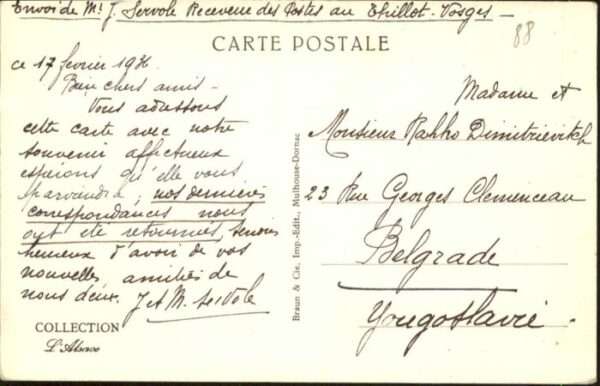 Envoi de Mr J. Servole Receveur des Postes au Thillot - Vosges -
88
CARTE POSTALE
ce 17 février 1936
Bien chers amis -
Vous adressons
cette carte avec notre
souvenir affectueux
espérons qu'elle vous
parviendra, nos dernières
correspondances nous
ont été retournées, serions
heureux d'avoir de vos
nouvelles amitiés de
nous deux. J et M. Servole
COLLECTION
L'Alsace
Braun & Cie, Imp.-Édit., Mulhouse-Dornac
Madame et
Monsieur Dimitriévitch
23 Rue Georges Clemenceau
Belgrade
Yougoslavie